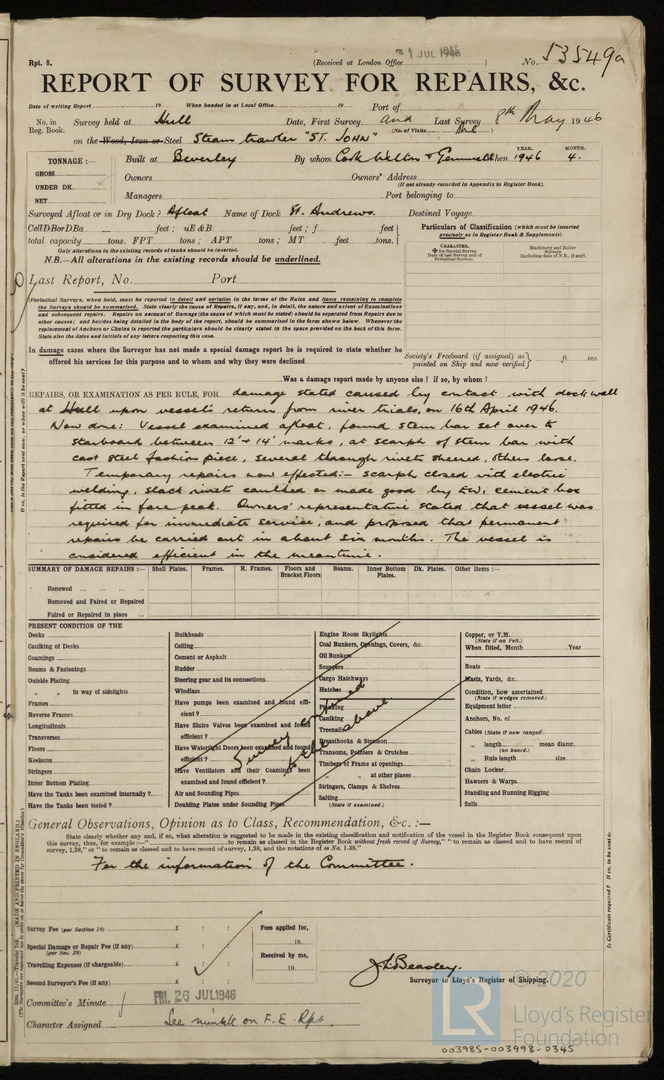 1 JUL 1946
Rpt. 8. (Received at London Office ) No. 53549a
REPORT OF SURVEY FOR REPAIRS, &c.
Date of writing Report 19 When handed in at Local Office 19 Port of
No. in Reg. Book. Survey held at Hull Date, First Survey and Last Survey 8th May 1946
(No. of Visits )
on the Wood, Iron or Steel Steam trawler "ST. JOHN"
TONNAGE :— Built at Beverley By whom Cook Welton & Gemmell When 1946 4.
YEAR. MONTH.
GROSS
UNDER DK.
NET
Owners Owners' Address
(If not already recorded in Appendix to Register Book.)
Managers Port belonging to
Surveyed Afloat or in Dry Dock? Afloat Name of Dock St. Andrews. Destined Voyage
CellDBorDBa feet; uE&B feet; f feet
total capacity tons. FPT tons; APT tons; MT feet tons.
Only alterations in the existing records of tanks should be inserted.
N.B.—All alterations in the existing records should be underlined.
Particulars of Classification (which must be inserted
precisely as in Register Book & Supplements)
CHARACTER.
* for Special Survey
Date of last Survey and of
Periodical Surveys.
Machinery and Boiler
Surveys
(including date of N.B., if any).
Last Report, No. Port
Periodical Surveys, when held, must be reported in detail and seriatim in the terms of the Rules and items remaining to complete
the Surveys should be summarised. State clearly the cause of Repairs, if any, and, in detail, the nature and extent of Examinations
and subsequent repairs. Repairs on account of Damage (the cause of which must be stated) should be separated from Repairs due to
other causes; and besides being detailed in the body of the report, should be summarised in the form shown below. Whenever the
replacement of Anchors or Chains is reported the particulars should be clearly stated in the space provided on the back of this form.
State also the dates and initials of any letters respecting this case.
In damage cases where the Surveyor has not made a special damage report he is required to state whether he
offered his services for this purpose and to whom and why they were declined
Society's Freeboard (if assigned) as
painted on Ship and now verified ft. ins.
Was a damage report made by anyone else? if so, by whom?
REPAIRS, OR EXAMINATION AS PER RULE, FOR damage stated caused by contact with dock wall
at Hull upon vessel's return from river trials, on 16th April 1946.
Now done: Vessel examined afloat, found stem bar set over to
starboard between 12' & 14' marks, at scarph of stem bar with
cast steel fashion piece, several through rivets sheered, others loose.
Temporary repairs now effected:— scarph closed with electric
welding, slack rivets caulked or made good by EW, cement box
fitted in fore peak. Owners' representative stated that vessel was
required for immediate service, and proposed that permanent
repairs be carried out in about six months. The vessel is
considered efficient in the meantime.
SUMMARY OF DAMAGE REPAIRS :— Shell Plates. Frames. R. Frames. Floors and Bracket Floors Beams. Inner Bottom Plates. Dk. Plates. Other Items :—
Renewed
Removed and Faired or Repaired
Faired or Repaired in place
PRESENT CONDITION OF THE
Decks
Caulking of Decks
Coamings
Beams & Fastenings
Outside Plating
" " in way of sidelights
Frames
Reverse Frames
Longitudinals
Transverses
Floors
Keelsons
Stringers
Inner Bottom Plating
Have the Tanks been examined internally?
Have the Tanks been tested?
Bulkheads
Ceiling
Cement or Asphalt
Rudder
Steering gear and its connections
Windlass
Have pumps been examined and found effi-
cient?
Have Sluice Valves been examined and found
efficient?
Have Watertight Doors been examined and found
efficient?
Have Ventilators and their Coamings been
examined and found efficient?
Air and Sounding Pipes
Doubling Plates under Sounding Pipes
Engine Room Skylights
Coal Bunkers, Openings, Covers, &c.
Oil Bunkers
Scuppers
Cargo Hatchways
Hatches
Planking
Caulking
Treenails
Breasthooks & Stemson
Transoms, Pointers & Crutches
Timbers of Frame at openings
" " at other places
Stringers, Clamps & Shelves
Salting
(State if examined.)
Copper, or Y.M.
(State if on Felt.)
When fitted, Month Year
Boats
Masts, Yards, &c.
Condition, how ascertained
(State if wedges removed.)
Equipment letter
Anchors, No. of
Cables (State if now ranged)
" length mean diamr.
(on board.)
" Rule length size
Chain Locker
Hawsers & Warps
Standing and Running Rigging
Sails
Survey confined
to the above
General Observations, Opinion as to Class, Recommendation, &c. :—
State clearly whether any and, if so, what alteration is suggested to be made in the existing classification and notification of the vessel in the Register Book consequent upon
this survey, thus, for example :—" to remain as classed in the Register Book without fresh record of Survey," " to remain as classed and to have record of
survey, 1,38," or " to remain as classed and to have record of survey, 1,38, and the notations of ss No. 1-38."
For the information of the Committee.
Survey Fee (per Section 29) £ : :
Special Damage or Repair Fee (if any) £ : :
(per Sec. 29)
Travelling Expenses (if chargeable) £ : :
Second Surveyor's Fee (if any) £ : :
Fees applied for,
19
Received by me,
19
J. Beasley.
Surveyor to Lloyd's Register of Shipping.
Committee's Minute FRI. 26 JUL 1946
Character Assigned See minute on F.E. Rpt.
© 2020
LR
Lloyd's Register
Foundation
003985-003998-0345
(MADE AND PRINTED IN ENGLAND.)
Is Certificate required? If so, to